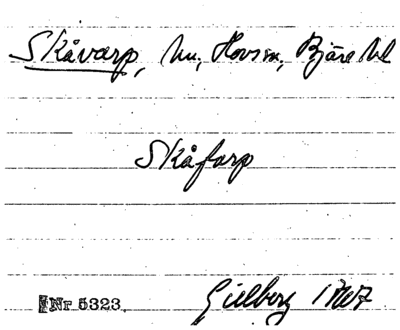 Skåvarp, hu, Hovs sn, Bjäre hd
Skåfarp
Nr 5323. Gillberg 1767